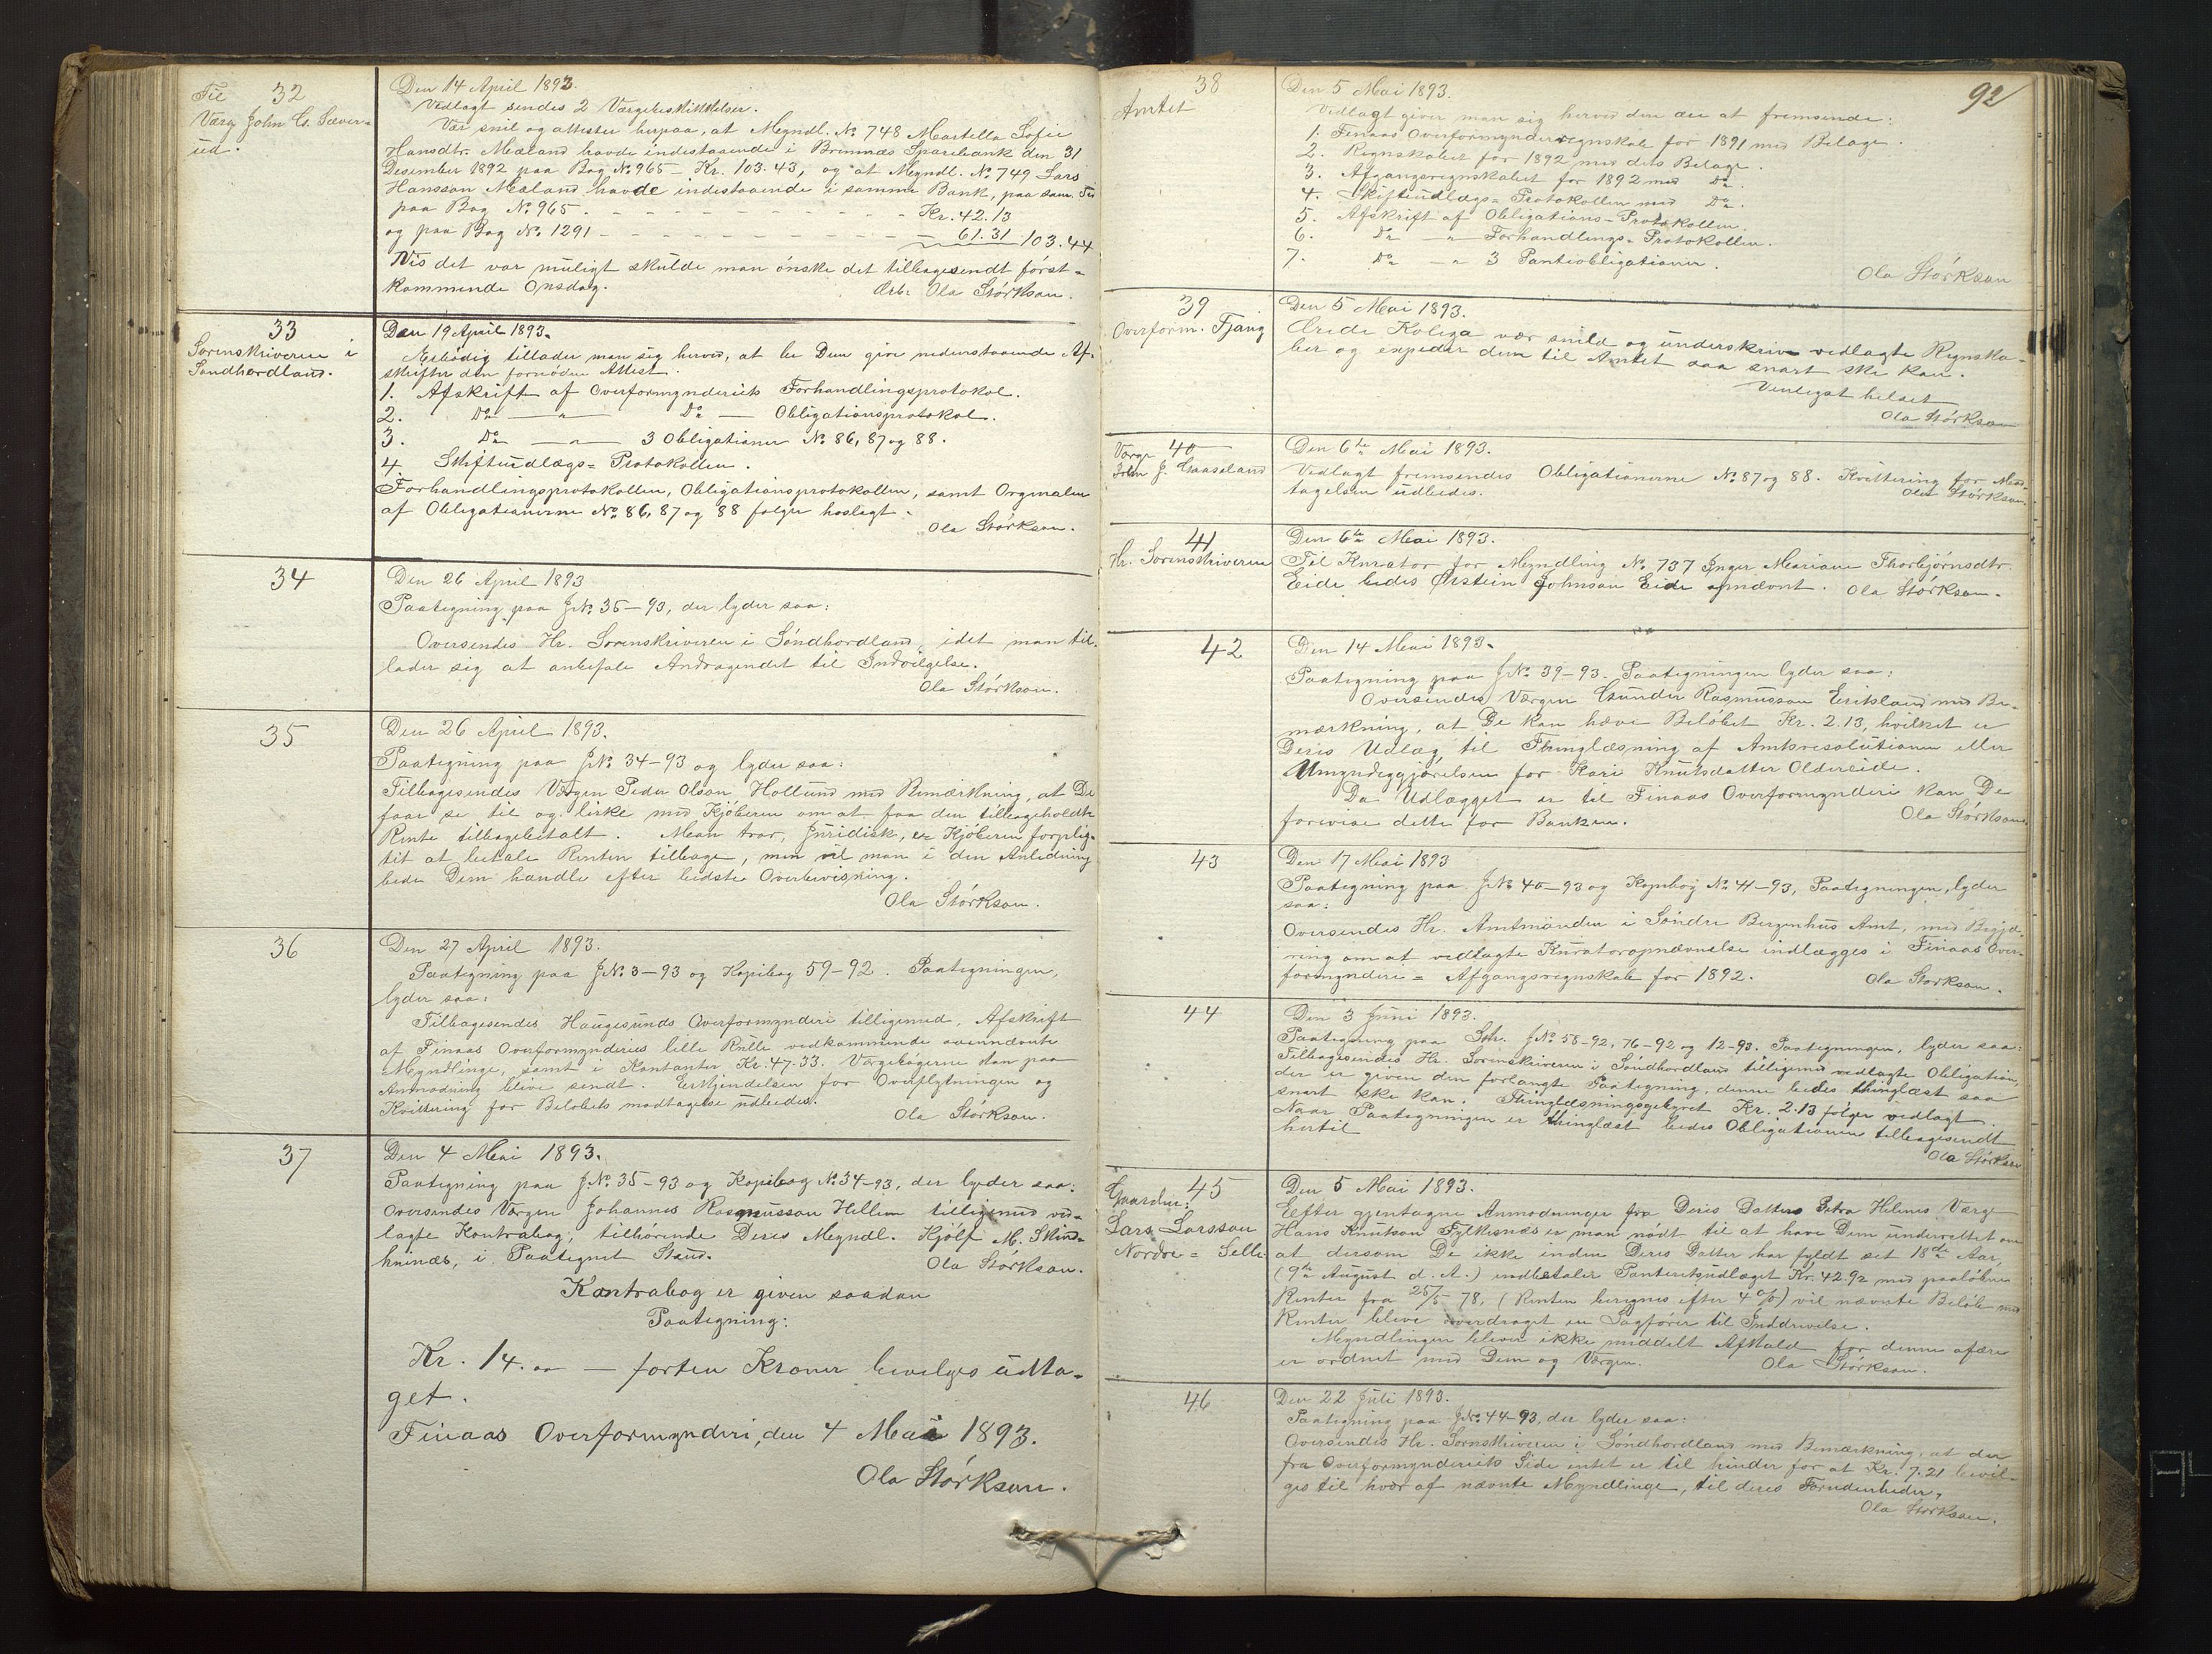 Til 32
Værg John G. Sæver-
ud.
Den 14 April 1893.
Vedlagt sendes 2 Værgebeskikkelser.
Vær snil og attester herpaa, at Myndl. No 748 Martella Sofie
Hansdtr. Mæland havde indestaaende i Bremnæs Sparebank den 31
Desember 1892 paa Bog No 965 - Kr. 103.43, og at Myndl. No 749 Lars
Hansson Mæland havde indestaaende i samme Bank, paa sam. Tid
paa Bog No 965 - - - - - - Kr. 42.13
og paa Bog No. 1291 - - - - - - 61.31 103.44
Vis det var muligt skulde man ønske det tilbagesendt først-
kommende Onsdag.
Ærb. Ola Størkson.
33
Sorenskriveren i
Søndhordland.
Den 19 April 1893.
Ærbødig tillader man sig herved, at be Dem give nedenstaaende Af-
skrifter den fornødne Attest.
1. Afskrift af Overformynderiets Forhandlingsprotokol.
2. Do — " — Do — Obligationsprotokol.
3. Do — " — 3 Obligationer No 86, 87 og 88.
4. Skiftudlægs= Protokollen.
Forhandlingsprotokollen, Obligationsprotokollen, samt Orginalen
af Obligationerne No 86, 87 og 88 følger hoslagt.
Ola Størkson.
34
Den 26 April 1893
Paategning paa J.No. 35-93, der lyder saa:
Oversendes Hr. Sorenskriveren i Søndhordland, idet man til-
lader sig at anbefale Andragendet til Indvilgelse.
Ola Størkson.
35
Den 26 April 1893.
Paategning paa J.No. 34-93 og lyder saa:
Tilbagesendes Værgen Peder Olson Hollund med Bemærkning, at De
faar se til og lirke med Kjøberen om at faa den tilbageholdte
Rente tilbagebetalt. Man tror, Juridisk, er Kjøberen forplig-
tit at betale Renten tilbage, men vil man i den Anledning
bede Dem handle efter bedste Overbevisning.
Ola Størkson.
36
Den 27 April 1893.
Paategning paa J.No. 3-93 og Kopibog 59-92. Paategningen,
lyder saa:
Tilbagesendes Haugesunds Overformynderi tilligemed, Afskrift
af Finaas Overformynderies lille Rulle vedkommende ovennævnte
Myndlinge, samt i Kontanter Kr. 47.33. Værgebøgerne kan paa
Anmodning blive sendt. Erkjendelsen for Overflytningen og
Kvittering for Beløbets modtagelse udbedes.
Ola Størkson.
37
Den 4 Mai 1893.
Paategning paa J.No. 35-93 og Kopibog No. 34-93, der lyder saa:
Oversendes Værgen Johannes Rasmusson Hellen tilligemed ved-
lagte Kontrabog, tilhørende Deres Myndl. Kjølf M. Skim-
, i Paategnet Stand.
Ola Størkson.
Kontrabog er given saadan
Paategning:
Kr. 14.00 — forten Kroner bevilges udta-
get.
Finaas Overformynderi, den 4 Mai 1893.
Ola Størkson.
92
38
Amtet
Den 5 Mai 1893.
Vedlagt giver man sig herved den ære at fremsende:
1. Finaas Overformynderregnskab for 1891 med Bilage.
2. Regnskabet for 1892 med dets Belage.
3. Afgangsregnskabet for 1892 med Do.
4. Skiftudlægs= Protokollen med Do.
5. Afskrift af Obligations=Protokollen.
6. Do — " — Forhandlings=Protokollen.
7. Do — " — 3 Pantiobligationer.
Ola Størkson
39
Overform. Fjang
Den 5 Mai 1893.
Ærede Kolega vær snild og underskrive vedlagte Regnska-
ber og expeder dem til Amtet saa snart ske kan.
Venligst helset
Ola Størkson
40
Værge
John J. Gaaseland
Den 6te Mai 1893.
Vedlagt fremsendes Obligationerne No 87 og 88. Kvittering for Mod-
tagelsen udbedes.
Ola Størkson.
41
Hr. Sorenskriveren
Den 6te Mai 1893.
Til Kurator for Myndling No. 737 Inger Mariane Thorbjørnsdtr.
Eide bedes Østein Johnson Eide opnævnt.
Ola Størkson.
42
Den 14 Mai 1893.
Paategning paa J.No. 39-93. Paategningen lyder saa:
Oversendes Værgen Gunder Rasmusson Eriksland med Be-
mærkning, at De kan hæve Beløbet Kr. 2.13, hvilket er
Deres Udlæg til Thinglæsning af Amtsresolutionen eller
Umyndiggjørelsen for Kari Knutsdatter Oldereide.
Da Udlægget er til Finaas Overformynderi kan De
forevise dette for Banken.
Ola Størkson.
43
Den 17 Mai 1893
Paategning paa J.No. 40-93 og Kopibog No 41-93, Paategningen, lyder
saa:
Oversendes Hr. Amtmanden i Søndre Bergenhus Amt, med Begjæ-
ring om at vedlagte Kuratoropnævnelse indlægges i Finaas Over-
formynderi= Afgangsregnskab for 1892.
Ola Størkson.
44
Den 3 Juni 1893.
Paategning paa J.No. 58-92, 76-92 og 12-93. Paategningen, lyder saa:
Tilbagesendes Hr. Sorenskriveren i Søndhordland tilligemed vedlagte Obligation,
der er given den forlangte Paategning, denne bedes thinglæst saa
snart ske kan. Thinglæsningsgebyret Kr. 2.13 følger vedlagt.
Naar Paategningen er thinglæst bedes Obligationen tilbagesendt
hertil
Ola Størkson
45
Gaardbr.
Lars Larsson
Nordre= Selle
Den 5 Mai 1893.
Efter gjentagne Anmodninger fra Deres Datters Petra Helenes Værge
Hans Knutson Fylkesnæs er man nødt til at have Dem underrettet om
at dersom De ikke inden Deres Datter har fyldt set 18de Aar,
(9de August d. A.) indbetaler Panteretsudlæget Kr. 42.92 med paaløbne
Renter fra 25/5 78, (Renten beregnes efter 4%) vil nævnte Beløb med
Renter blive overdraget en Sagfører til Inddrivelse.
Myndlingen bliver ikke meddelt Afkald før denne afære
er ordnet med Dem og Værgen.
Ola Størkson.
46
Den 22 Juli 1893.
Paategning paa J.No. 44-93, der lyder saa:
Oversendes Hr. Sornskriveren i Søndhordland med Bemærkning, at der
fra Overformynderiets Side intet er til hinder for at Kr. 7.21 bevil-
ges til hvor af nævnte Myndlinge, til deres Fornødenheder.
Ola Størkson.